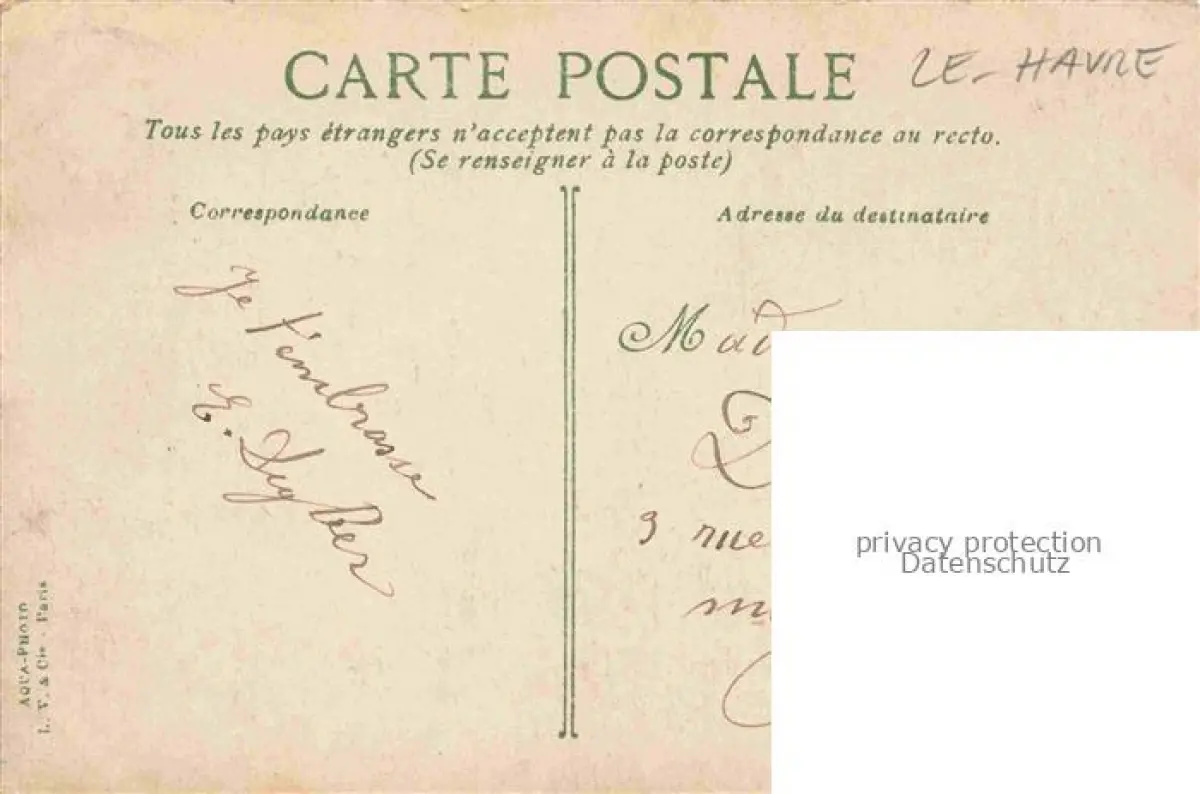 CARTE POSTALE
LE-HAVRE
Tous les pays étrangers n'acceptent pas la correspondance au recto.
(Se renseigner à la poste)
Correspondance
Adresse du destinataire
Je t'embrasse
E.
Mad
3 rue
privacy protection
Datenschutz
AQUA-PHOTO
L. V. & Cie - Paris